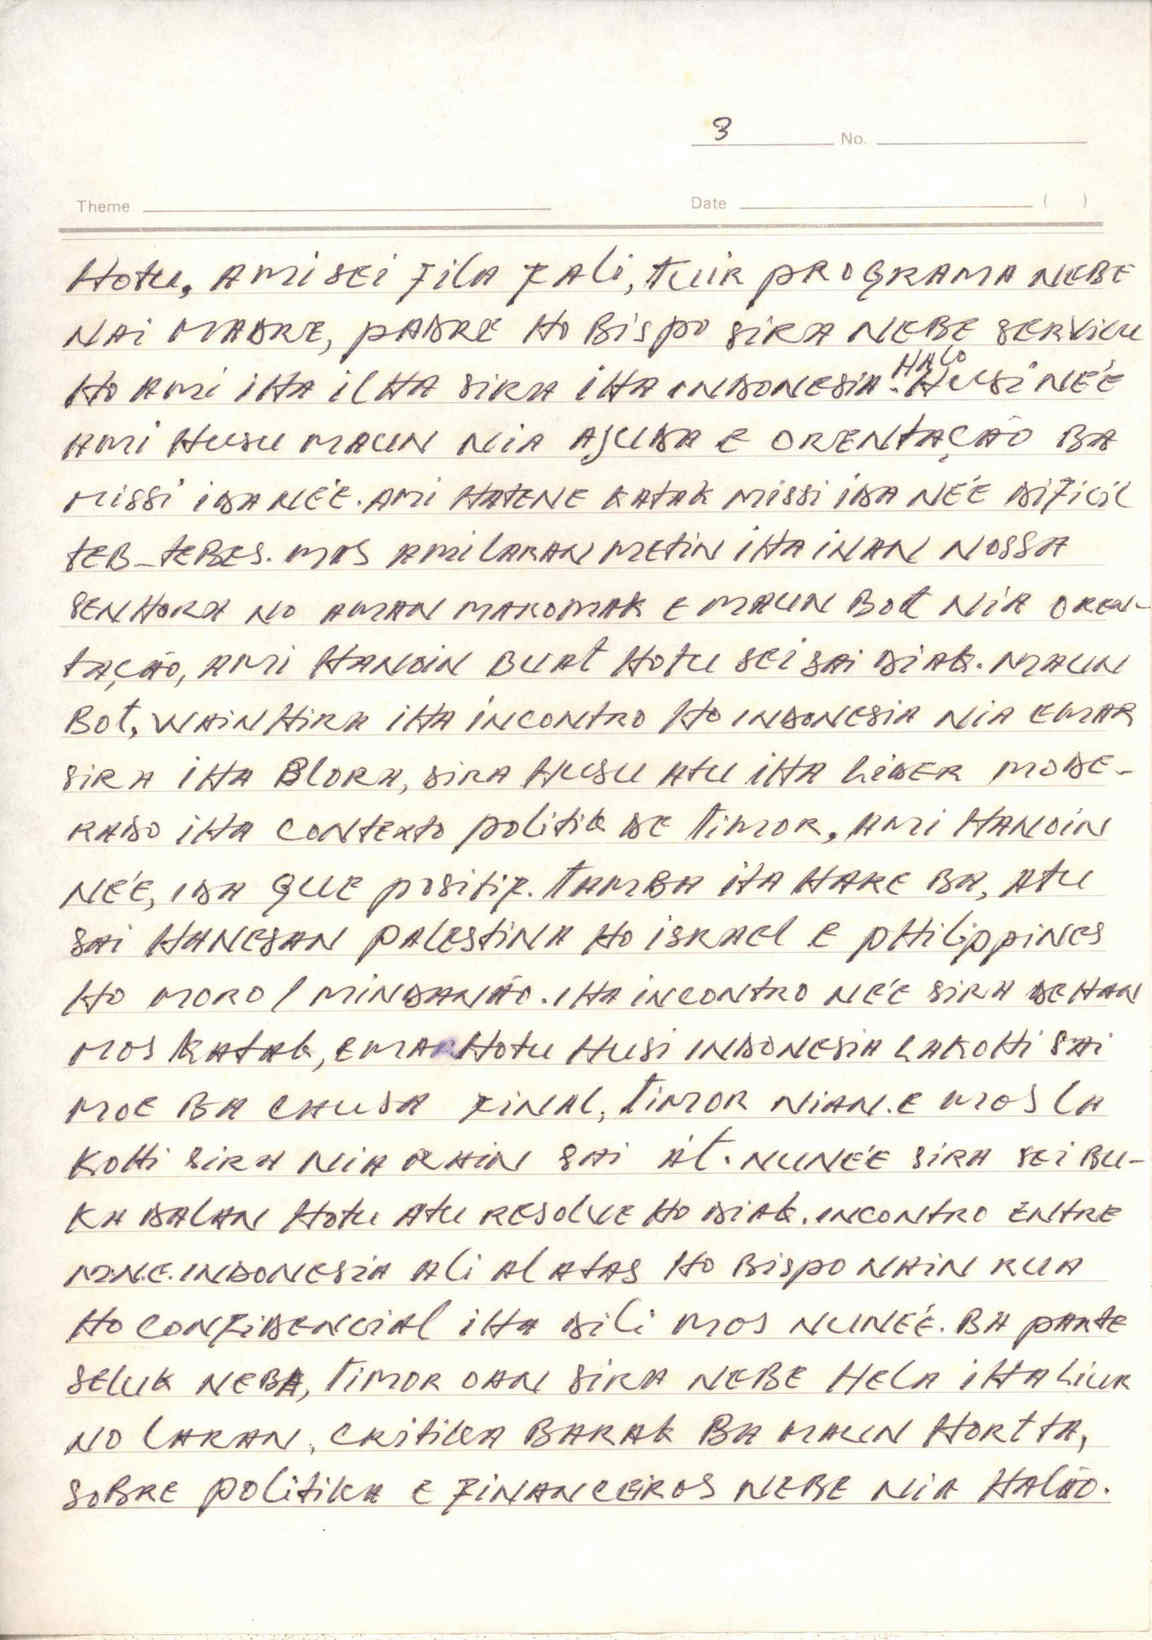 3 No.
Theme Date ( )
HOTU, AMI SEI FILA FALI, TUIR PROGRAMA NEBE
NAI MADRE, PADRE HO BISPO SIRA NEBE SERVICU
HALO
HO AMI IHA ILHA SIRA IHA INDONESIA. HUSI NE'E
AMI HUSU MAUN NIA AJUDA E ORENTAÇÃO BA
MISSI IDA NE'E. AMI HATENE KATAK MISSI IDA NE'E DIFICIL
TEB-TEBES. MOS AMI LARAN METIN IHA INAN NOSSA
SENHORA NO AMAN MAROMAK E MAUN BOT NIA OREN-
TAÇÃO, AMI HANOIN BUAT HOTU SEI SAI DIAK. MAUN
BOT, WAINHIRA IHA INCONTRO HO INDONESIA NIA EMAR
SIRA IHA BLORA, SIRA HUSU ATU IHA LIDER MODE-
RADO IHA CONTEXTO POLITIK DE TIMOR, AMI HANOIN
NE'E, IDA QUE POSITIF. TAMBA ITA HAKE BA, ATU
SAI HANESAN PALESTINA HO ISRAEL E PHILIPPINES
HO MORO / MINDANÃO. IHA INCONTRO NE'E SIRA DEHAN
MOS KATAK, EMAR HOTU HUSI INDONESIA LAKOHI SAI
MOE BA CAUSA FINAL, TIMOR NIAN. E MOS LA
KOHI SIRA NIA RAIN SAI AT. NUNE'E SIRA SEI BU-
KA DALAN HOTU ATU RESOLVE HO DIAK. INCONTRO ENTRE
M.N.E. INDONESIA ALI ALATAS HO BISPO NAIN RUA
HO CONFIDENCIAL IHA DILI MOS NUNE'E. BA PARTE
SELUK NEBA, TIMOR OAN SIRA NEBE HELA IHA LIUR
NO LARAN, CRITIKA BARAK BA MAUN HORTTA,
SOBRE POLITIKA E FINANCEIROS NEBE NIA HALÃO.